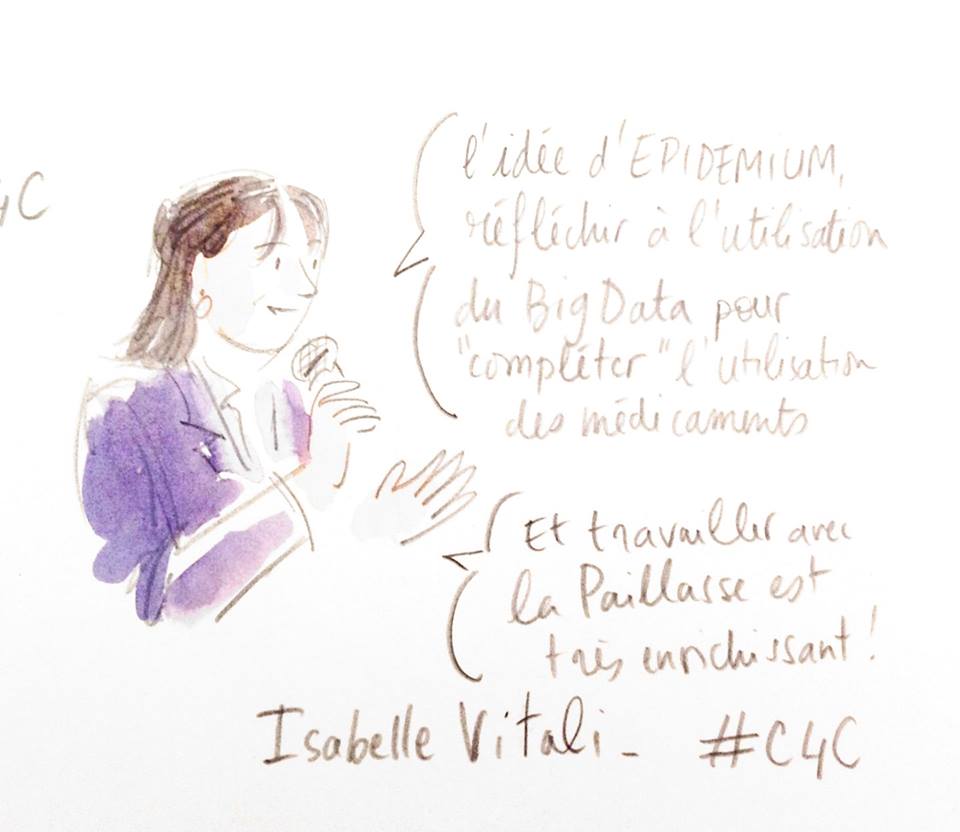 4C
l'idée d'EPIDEMIUM,
réfléchir à l'utilisation
du Big Data pour
"compléter" l'utilisation
des médicaments
Et travailler avec
la Paillasse est
très enrichissant !
Isabelle Vitali_ #C4C